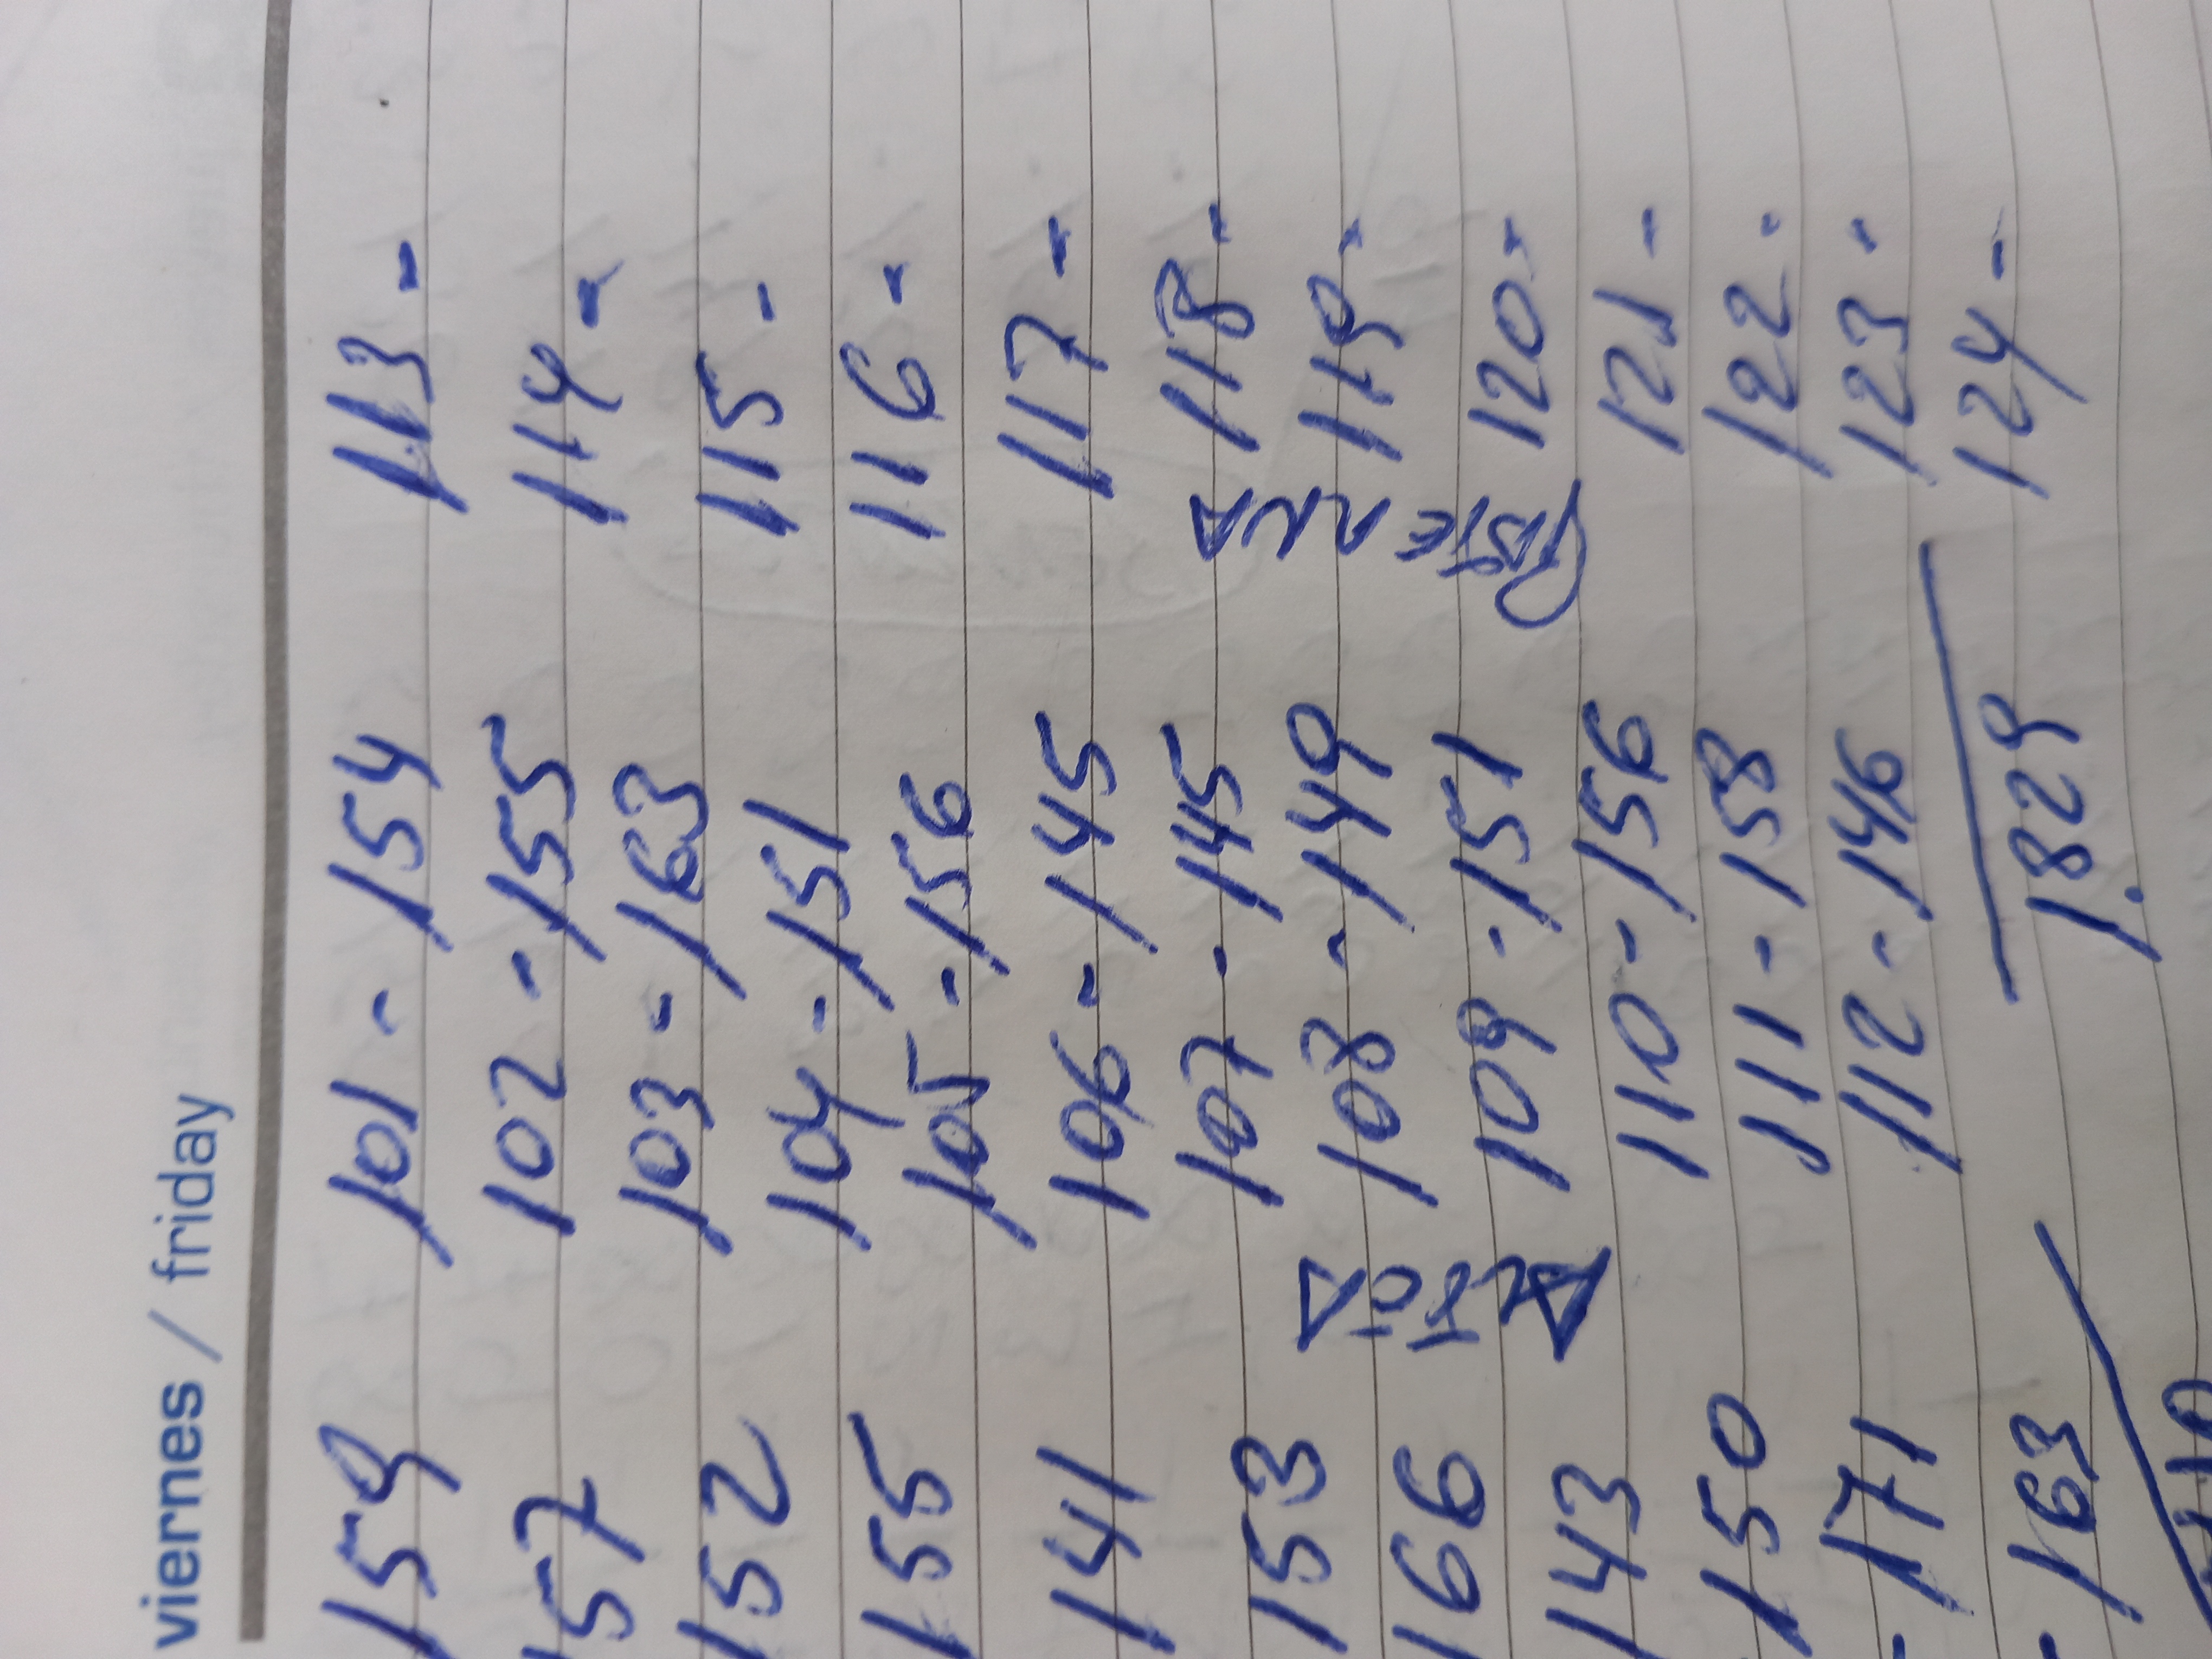 viernes / friday
154 101 - 154 113 -
157 102 - 155 114 -
152 103 - 163 115 -
155 104 - 151 116 -
141 105 - 156 117 -
153 106 - 145 118 -
166 107 - 145 119 -
143 108 - 149 120 -
150 109 - 151 121 -
- 171 110 - 156 122 -
- 163 111 - 158 123 -
112 - 146 124 -
1.829